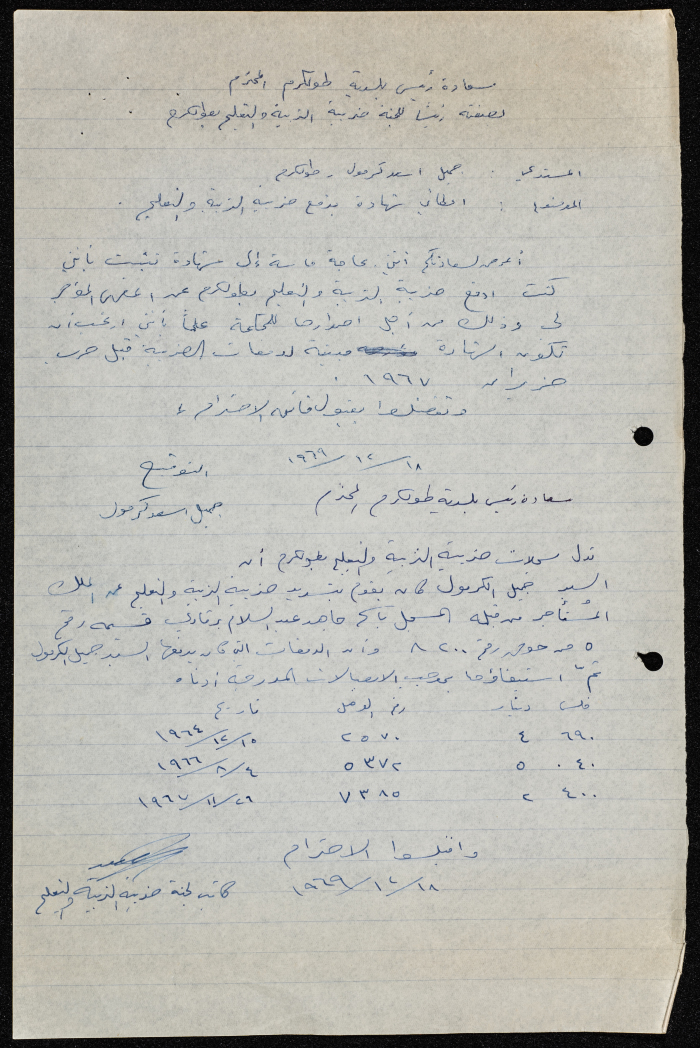 سعادة رئيس بلدية طولكرم المحترم
بصفته رئيساً للجنة ضريبة التربية والتعليم بطولكرم
المستدعي : جميل اسعد كرمول - طولكرم
المدعو : اعطائي شهادة بدفع ضريبة التربية والتعليم .
أعرض لسعادتكم أنني بحاجة ماسة إلى شهادة تثبت بأنني
كنت ادفع ضريبة التربية والتعليم بطولكرم عن المؤجر
لي وذلك من أجل ابرازها للمحكمة علماً بأنني ارغب أن
تكون الشهادة مبينة لدفعات الضريبة قبل حرب
حزيران ١٩٦٧ .
وتفضلوا بقبول فائق الاحترام ،
١٨/١٢/١٩٦٩ التوقيع
جميل اسعد كرمول
سعادة رئيس بلدية طولكرم المحترم
تدل سجلات ضريبة التربية والتعليم بطولكرم أن
السيد جميل الكرمول كان يقوم بتسديد ضريبة التربية والتعليم عن الملك
المُستأجر من قبله المسجل باسم حامد عبد السلام برقاوي قسيمة رقم
٥ من حوض رقم ٨٢٠٠ وأن الدفعات التي كان يدفعها السيد جميل الكرمول
تمّ استيفاؤها بموجب الايصالات المدرجة أدناه
فلس دينار رقم الوصل تاريخ
٦٩٠ ٤ ٢٥٧٠ ١٥/١٢/١٩٦٤
٠٤٠ ٥ ٥٣٧٢ ٤/٨/١٩٦٦
٤٠٠ ٢ ٧٣٨٥ ٢٦/١١/١٩٦٧
واقبلوا الاحترام
١٨/١٢/١٩٦٩
كاتب لجنة ضريبة التربية والتعليم